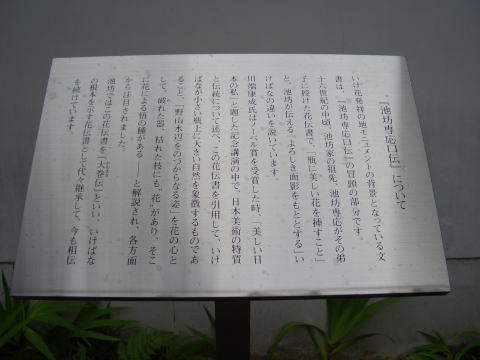 『池坊専応口伝』について
いけ花発祥の地モニュメントの背景となっている文
書は、『池坊専応口伝』の冒頭の部分です。
十六世紀の中頃、池坊家の祖先、池坊専応がその弟
子に授けた花伝書で、「瓶に美しい花を挿すこと」
と、池坊が伝える「よろしき面影をもととする」い
けばなの違いを説いています。
川端康成氏はノーベル賞を受賞した時、「美しい日
本の私」と題した記念講演の中で、日本美術の特質
と伝統について述べ、この花伝書を引用して、いけ
ばなが小さい瓶上に大きい自然を象徴するものであ
ること、「野山水辺をのづからなる姿」を花の心と
して、破れた部、枯れた枝にも〝花〟があり、そこ
に花による悟の種がある――と解説され、各方面
から注目されました。
池坊ではこの花伝書を「大巻伝」といい、いけばな
の根本を示す花伝書として代々継承して、今も相伝
を続けています。